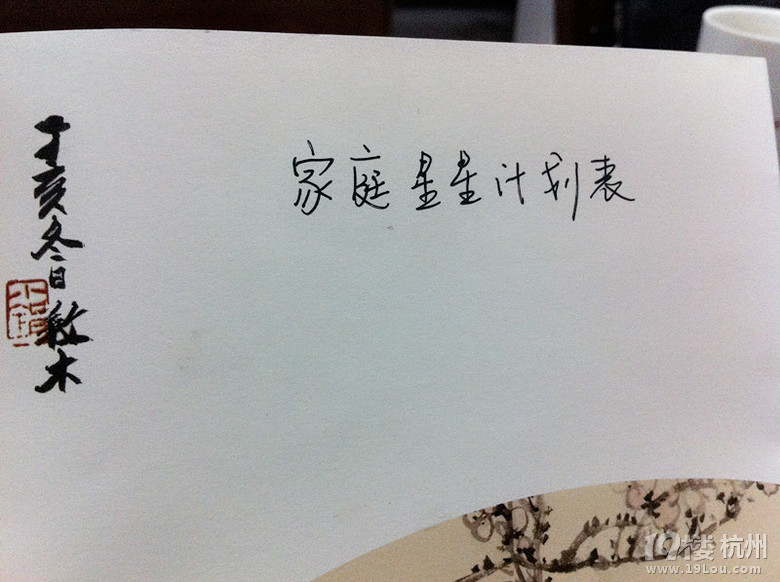 家庭星星计划表
丁亥冬日秋木
19楼 杭州
www.19Lou.com